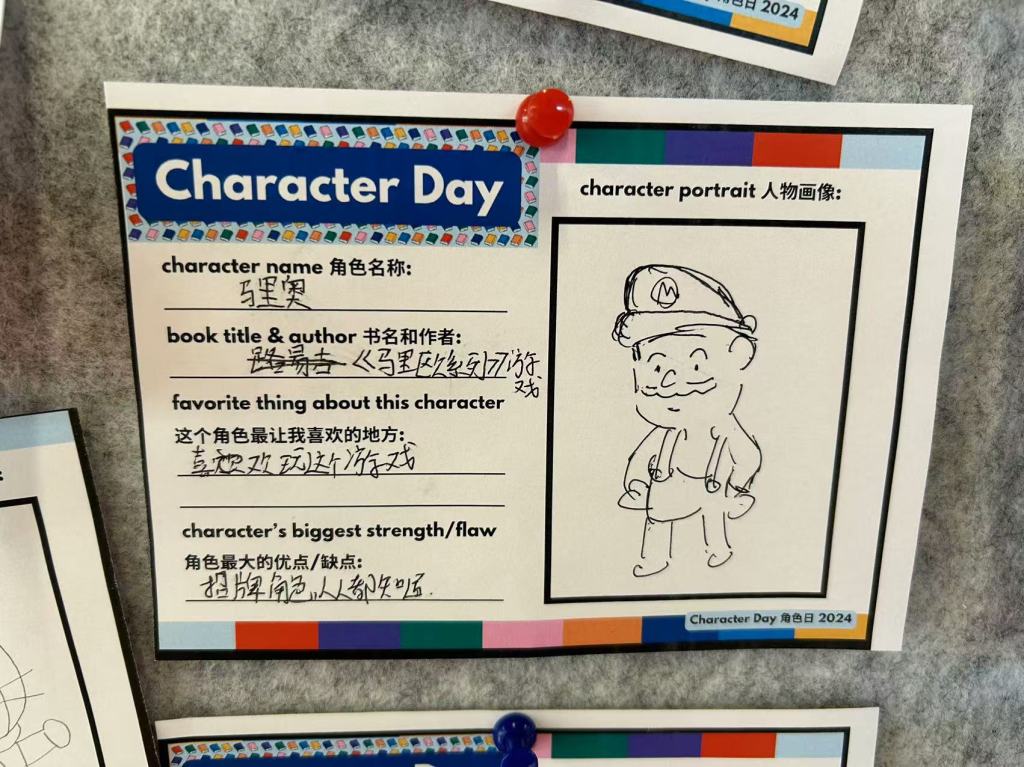 角色日 2024
Character Day
character name 角色名称:
马里奥
book title & author 书名和作者:
路易吉 《马里欧系列》游
戏
favorite thing about this character
这个角色最让我喜欢的地方:
喜欢玩这个游戏
character's biggest strength/flaw
角色最大的优点/缺点:
招牌角色,人人都知
character portrait 人物画像:
M
Character Day 角色日 2024